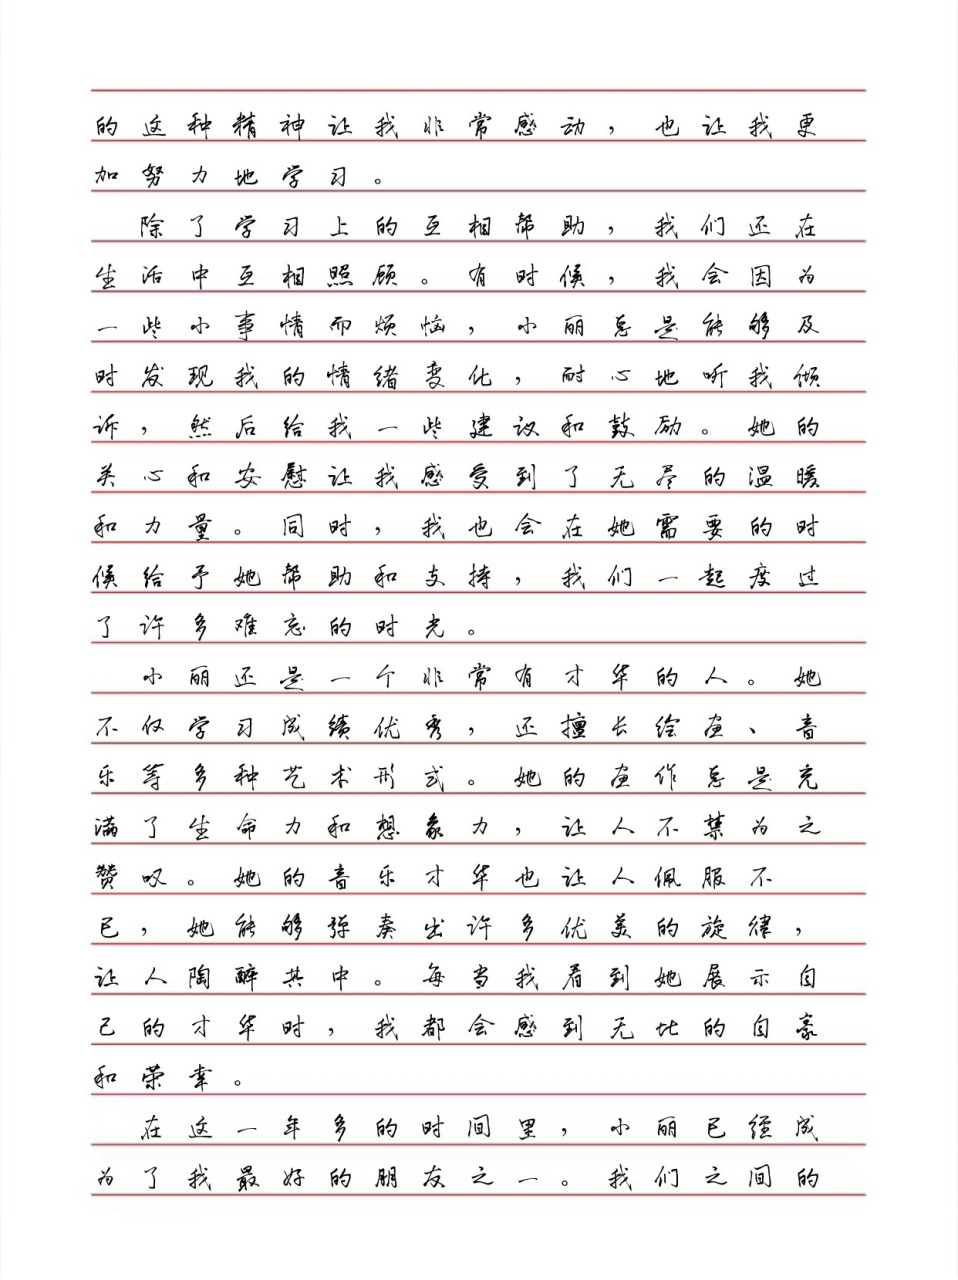 的这种精神让我非常感动，也让我更
加努力地学习。
除了学习上的互相帮助，我们还在
生活中互相照顾。有时候，我会因为
一些小事情而烦恼，小丽总是能够及
时发现我的情绪变化，耐心地听我倾
诉，然后给我一些建议和鼓励。她的
关心和安慰让我感受到了无尽的温暖
和力量。同时，我也会在她需要的时
候给予她帮助和支持，我们一起度过
了许多难忘的时光。
小丽还是一个非常有才华的人。她
不仅学习成绩优秀，还擅长绘画、音
乐等多种艺术形式。她的画作总是充
满了生命力和想象力，让人不禁为之
赞叹。她的音乐才华也让人佩服不
已，她能够弹奏出许多优美的旋律，
让人陶醉其中。每当我看到她展示自
己的才华时，我都会感到无比的自豪
和荣幸。
在这一年多的时间里，小丽已经成
为了我最好的朋友之一。我们之间的